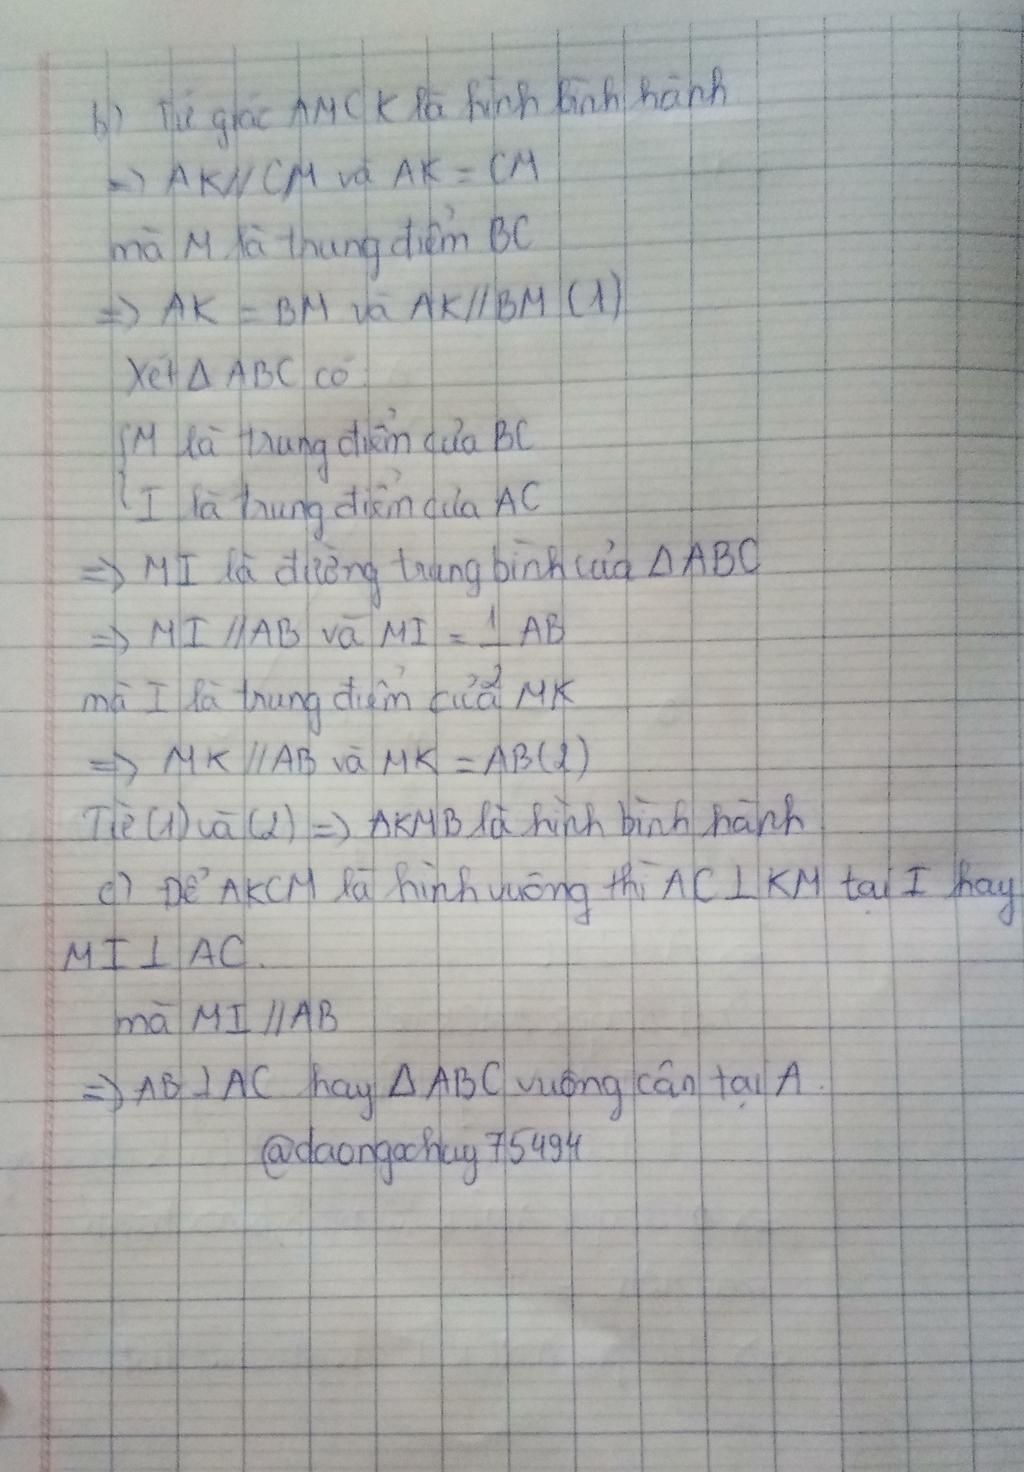 b) Tứ giác AMCK là hình bình hành
=> AK//CM và AK = CM
mà M là thung điểm BC
=> AK = BM và AK//BM (1)
Xét Δ ABC có
{M là trung điểm của BC
{I là trung điểm của AC
=> MI là đường trung bình của Δ ABC
=> MI //AB và MI = 1/2 AB
mà I là trung điểm của MK
=> MK //AB và MK = AB(2)
Từ (1) và (2) => AKMB là hình bình hành
c) Để AKCM là hình vuông thì AC ⊥ KM tại I hay
MI ⊥ AC.
mà MI //AB
=> AB ⊥ AC hay Δ ABC vuông cân tại A.
@daongochuy75494